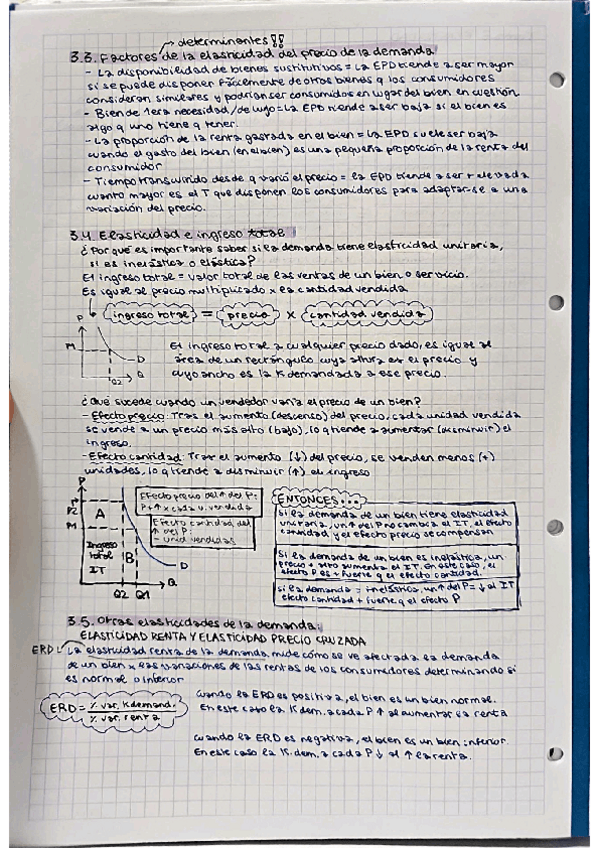 → determinantes!!
3.3. Factores de la elasticidad del precio de la demanda
- La disponibilidad de bienes sustitutivos = La EPD tiende a ser mayor
si se puede disponer fácilmente de otros bienes q los consumidores
consideran similares y podrían ser consumidos en lugar del bien en cuestión.
- Bien de 1era necesidad / de lujo = La EPD tiende a ser baja si el bien es
algo q uno tiene q tener.
- La proporción de la renta gastada en el bien = La EPD suele ser baja
cuando el gasto del bien (en el bien) es una pequeña proporción de la renta del
consumidor
- Tiempo transcurrido desde q varió el precio = la EPD tiende a ser + elevada
cuanto mayor es el T que disponen los consumidores para adaptar-se a una
variación del precio.
3.4. Elasticidad e ingreso total
¿Por qué es importante saber si la demanda tiene elasticidad unitaria,
si es inelástica o elástica?
El ingreso total = valor total de las ventas de un bien o servicio.
Es igual al precio multiplicado x la cantidad vendida
ingreso total = precio x cantidad vendida
P
M
D
Q2
Q
El ingreso total a cualquier precio dado, es igual al
área de un rectángulo cuya altura es el precio y
cuyo ancho es la K demandada a ese precio.
¿Qué sucede cuando un vendedor varía el precio de un bien?
- Efecto precio: Tras el aumento (descenso) del precio, cada unidad vendida
se vende a un precio más alto (bajo), lo q tiende a aumentar (disminuir) el
ingreso.
- Efecto cantidad: Tras el aumento (↓) del precio, se venden menos (+)
unidades, lo q tiende a disminuir (↑) el ingreso
P
P2
M
A
Ingreso
total
IT
B
D
Q2 Q1
Q
Efecto precio del ↑ del P:
P + ↑ x cada u. vendida
Efecto cantidad del
↑ del P:
- unid vendidas
ENTONCES...
Si la demanda de un bien tiene elasticidad
unitaria, un ↑ del P no cambia el IT, el efecto
cantidad y el efecto precio se compensan
Si la demanda de un bien es inelástica, un
precio + alto aumenta el IT. En este caso, el
efecto P es + fuerte q el efecto cantidad.
Si la demanda = +inelástica, un ↑ del P = ↓ al IT
efecto cantidad + fuerte q el efecto P
3.5. Otras elasticidades de la demanda:
ELASTICIDAD RENTA Y ELASTICIDAD PRECIO CRUZADA
ERD: La elasticidad renta de la demanda, mide cómo se ve afectada la demanda
de un bien x las variaciones de las rentas de los consumidores determinando si
es normal o inferior
ERD = % var. K demand. / % var. renta
Cuando la ERD es positiva, el bien es un bien normal.
En este caso la K dem. a cada P ↑ al aumentar la renta
Cuando la ERD es negativa, el bien es un bien inferior.
En este caso la K. dem. a cada P ↓ al ↑ la renta.